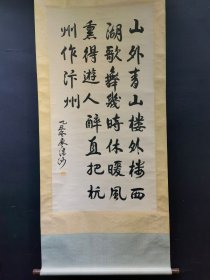 山外青山楼外楼西
湖歌舞幾時休暖风
熏得遊人醉直把杭
州作汴州